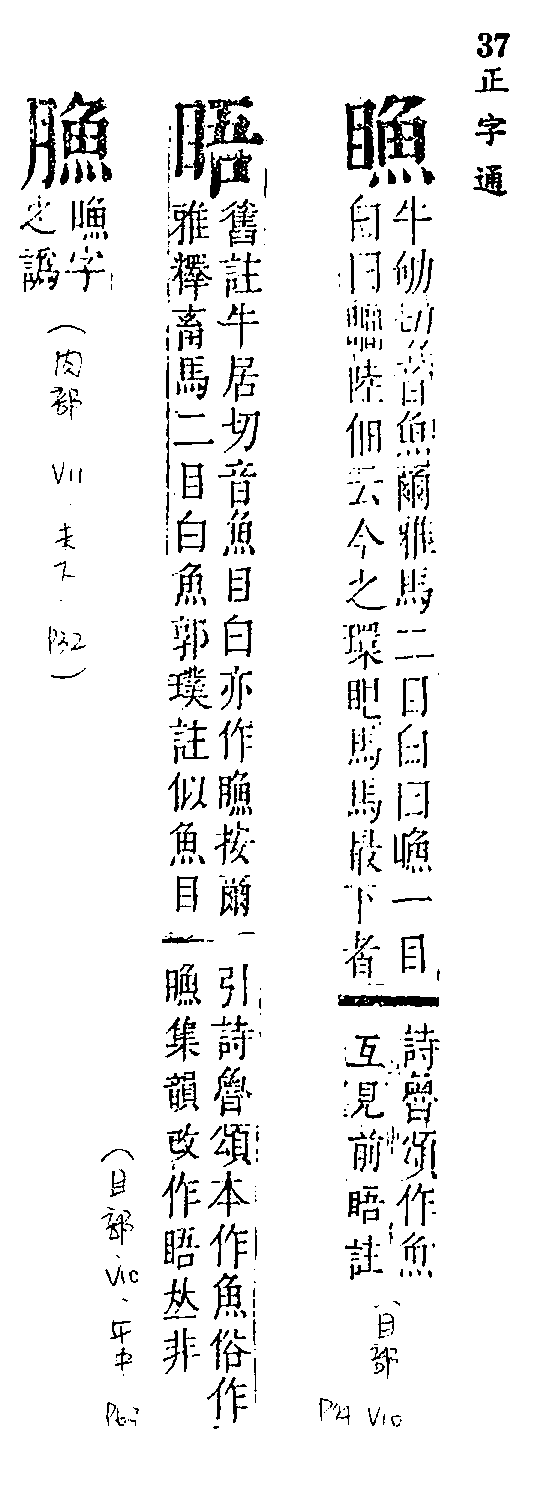 37 正字通
䁩
牛劬切音魚爾雅馬二目白曰䁩一目
白曰瞯陸佃云今之環眼馬馬最下者
詩魯頌作魚
互見前䁒註
(目部
V10
䁒
舊註牛居切音魚目白亦作䁩按爾
雅釋畜馬二目白魚郭璞註似魚目
引詩魯頌本作魚俗作
䁩集韻改作䁒𠀤非
(目部.V10.午中
⿰月魚
䁩字
之譌
(肉部 VII.未下.P32)